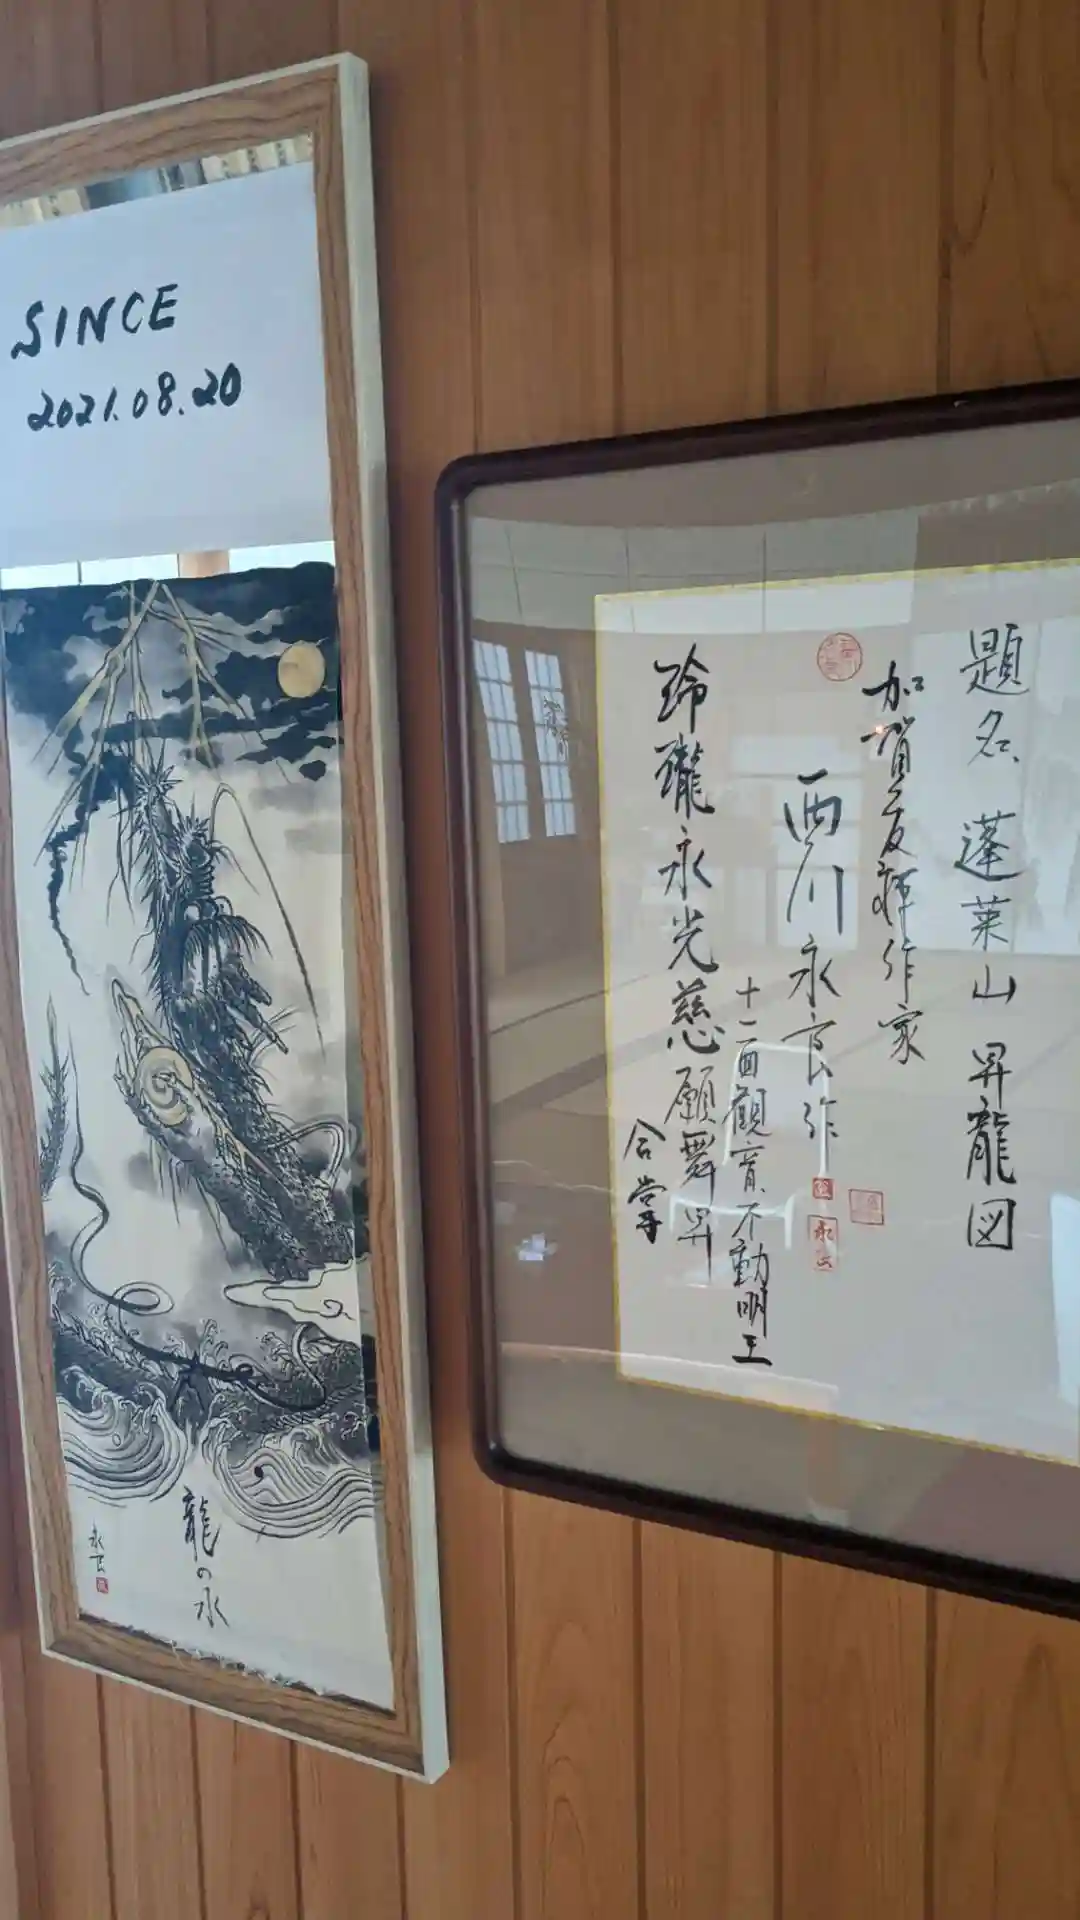 SINCE
2021.08.20
龍の水
永良
題名 蓬莱山 昇龍図
加賀友禅作家
西川永良作
十一面観音、不動明王
玲瓏永光慈願舞昇
合掌